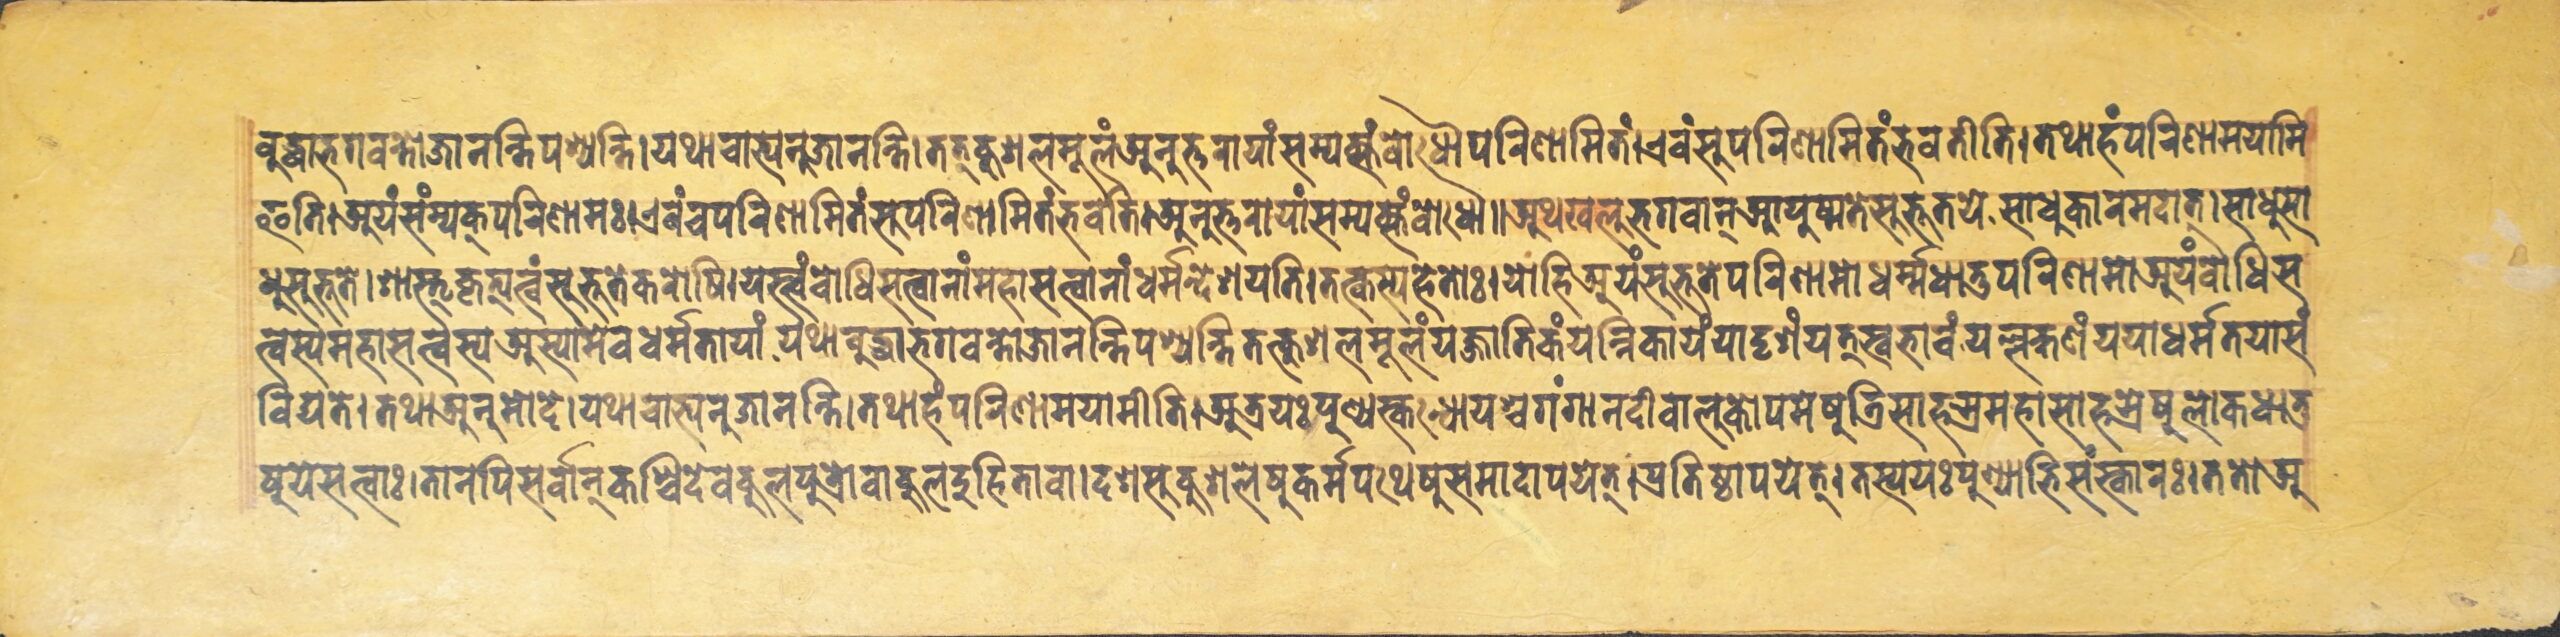 बुद्धाभगवन्तोजानन्तिपश्यन्ति।यथाचाभ्यनुजानन्ति।तत्कुशलमूलंअनुत्तरायांसम्यक्संबोधौपरिणामितं।एवंसुपरिणामितंभवतीति।तथाहंपरिणामयामि
इति।अयंसंम्यक्परिणामः।एवंचपरिणामितंसुपरिणामितंभवति।अनुत्तरायांसम्यक्संबोधौ॥अथखलुभगवान्आयुष्मतेसुभूतये साधुकारमदात्।साधुसा
धुसुभूते।शास्तृकृत्यत्वंसुभूतेकरोषि।यस्त्वंबोधिसत्वानांमहासत्वानांधर्मन्देशयति।तत्कस्यहेतोः।योहिअयंसुभूतेपरिणामोधर्म्मधातुपरिणामोअयंबोधिस
त्वस्यमहासत्वस्यअस्यामेवधर्मतायां यथाबुद्धाभगवन्तोजानन्तिपश्यन्तितत्कुशलमूलंयज्जातिकंयन्निकायंयादृशंयत्स्वभावंयल्लक्षणंययाधर्मतयासं
विद्यते।तथाअनुमोदे।यथाचाभ्यनुजानन्ति।तथाहंपरिणामयामीति।अत्रयःपुण्यस्कन्धोयश्चगंगानदीवालुकोपमेषुत्रिसाहस्रमहासाहस्रेषुलोकधातु
षुयेसत्वाः।तानपिसर्वान्कश्चिदेवकुलपुत्रोवाकुलदुहितावा।दशसुकुशलेषुकर्मपथेषुसमादापयेत्।प्रतिष्ठापयेत्।तस्ययःपुण्याभिसंस्कारः।ततोअ